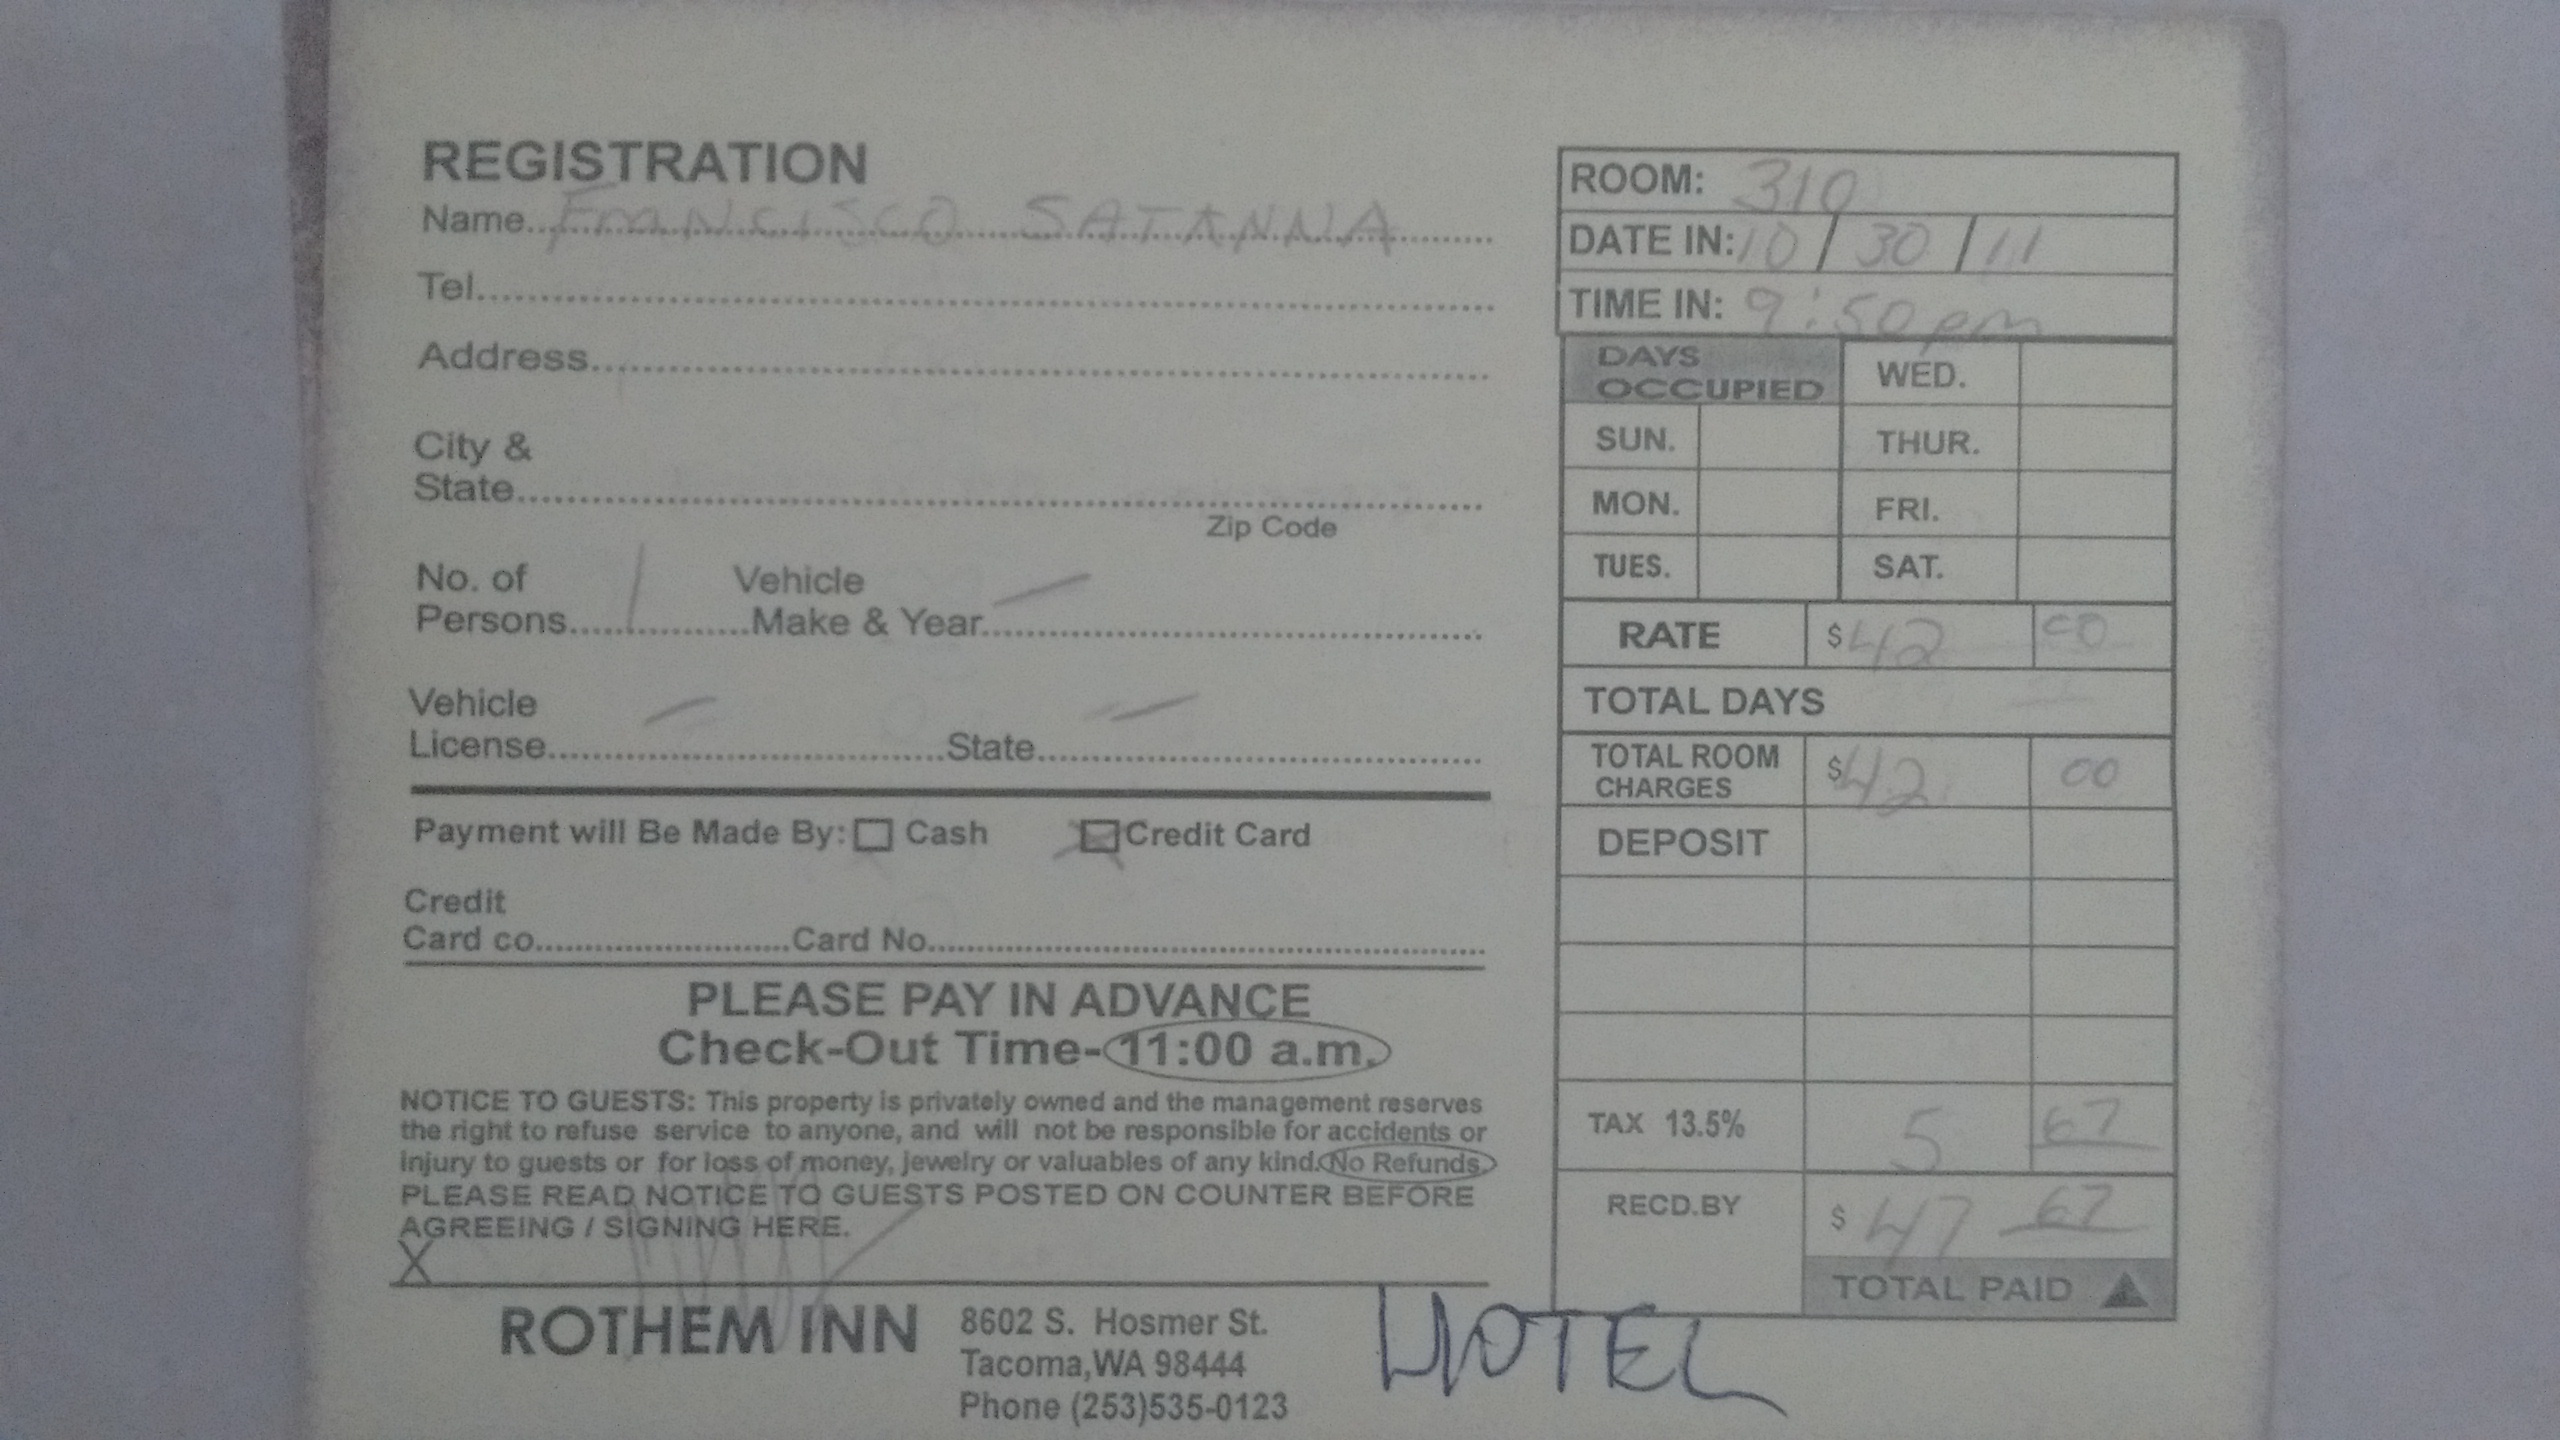 REGISTRATION
Name FRANCISCO SATANNA
Tel.
Address
City &
State
Zip Code
No. of Persons 1 Vehicle Make & Year —
Vehicle License — State —
Payment will Be Made By: ☐ Cash ☒ Credit Card
Credit
Card co. Card No.
PLEASE PAY IN ADVANCE
Check-Out Time-11:00 a.m.
NOTICE TO GUESTS: This property is privately owned and the management reserves
the right to refuse service to anyone, and will not be responsible for accidents or
injury to guests or for loss of money, jewelry or valuables of any kind. No Refunds.
PLEASE READ NOTICE TO GUESTS POSTED ON COUNTER BEFORE
AGREEING / SIGNING HERE.
X
ROTHEM INN
8602 S. Hosmer St.
Tacoma,WA 98444
Phone (253)535-0123
HOTEL
ROOM: 310
DATE IN: 10 / 30 / 11
TIME IN: 9:50 pm
DAYS OCCUPIED WED.
SUN. THUR.
MON. FRI.
TUES. SAT.
RATE $42 00
TOTAL DAYS
TOTAL ROOM CHARGES $42 00
DEPOSIT
TAX 13.5% 5 67
RECD.BY $ 47 67
TOTAL PAID